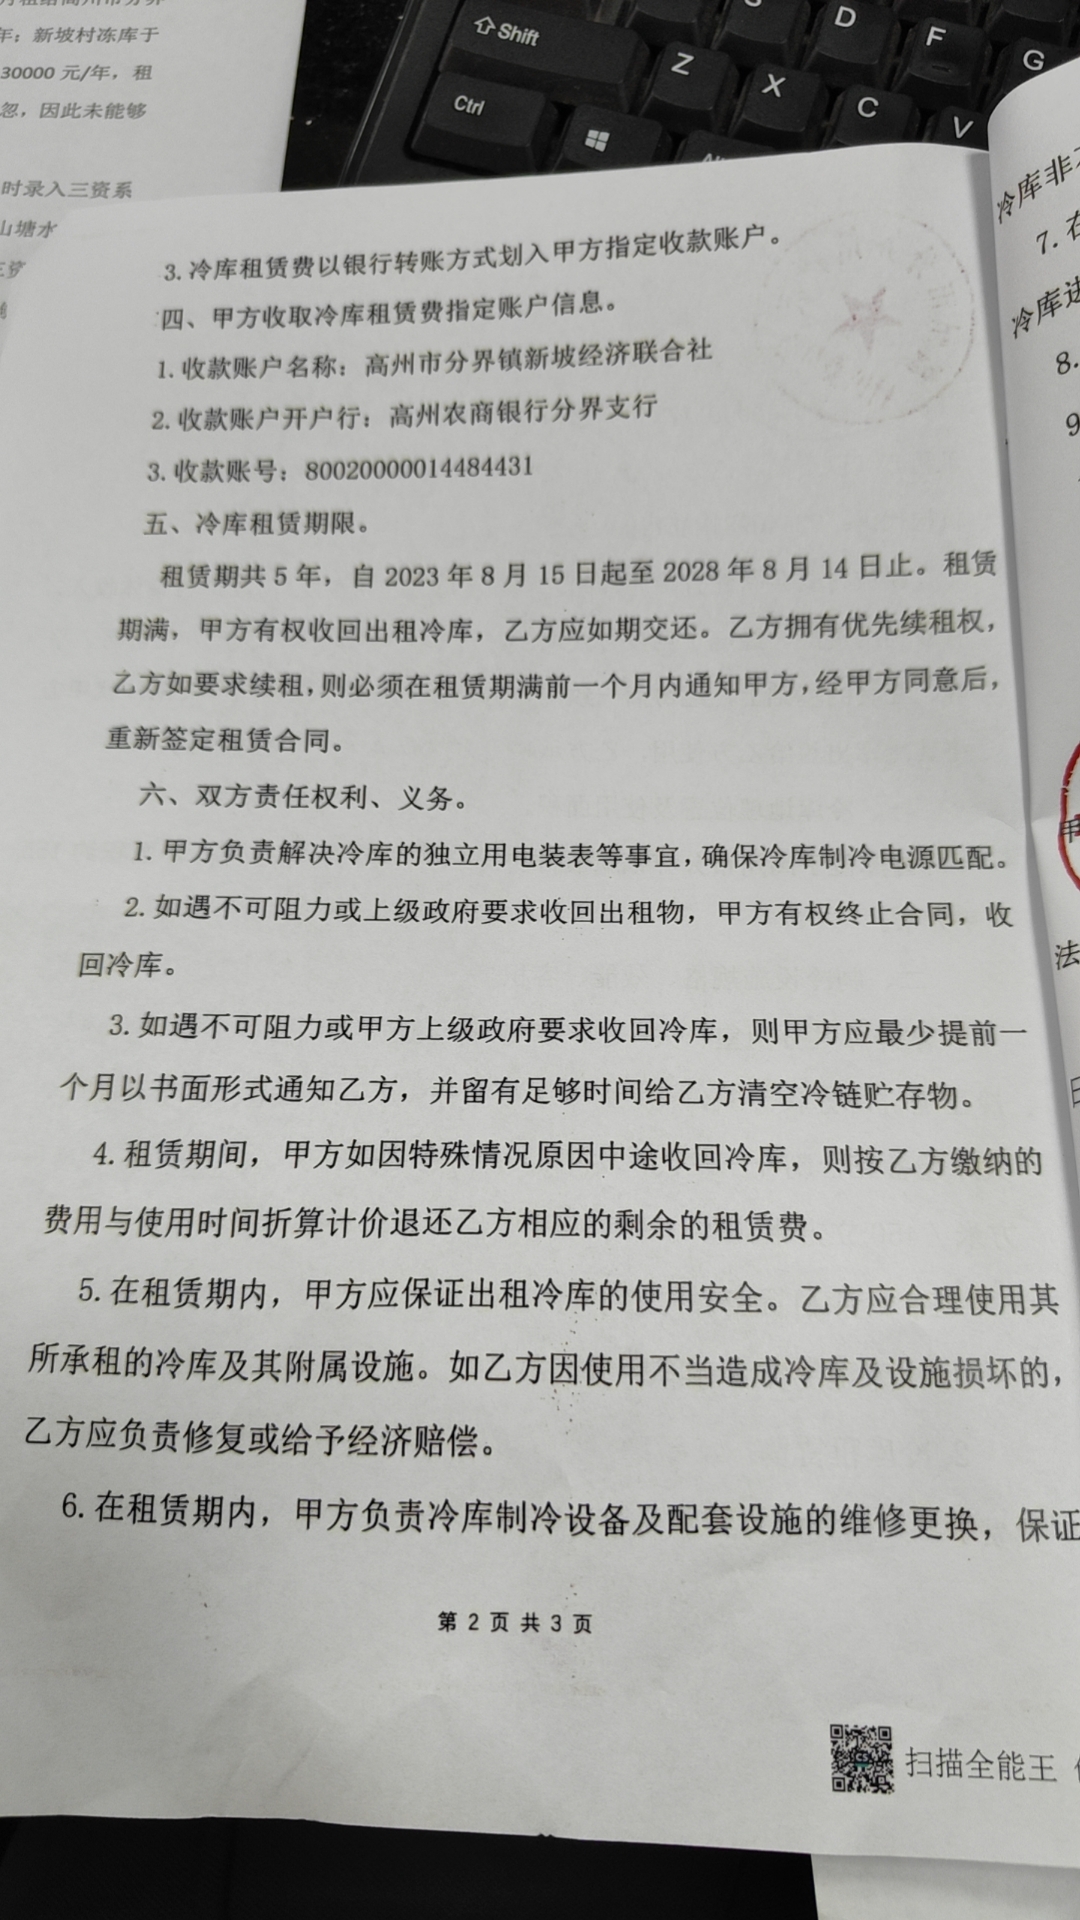 年：新坡村冻库于
30000 元/年，租
忽，因此未能够
时录入三资系
山塘水
Shift
Ctrl
Z
X
C
V
D
F
G
3.冷库租赁费以银行转账方式划入甲方指定收款账户。
四、甲方收取冷库租赁费指定账户信息。
1.收款账户名称：高州市分界镇新坡经济联合社
2.收款账户开户行：高州农商银行分界支行
3.收款账号：80020000014484431
五、冷库租赁期限。
租赁期共 5 年，自 2023 年 8 月 15 日起至 2028 年 8 月 14 日止。租赁
期满，甲方有权收回出租冷库，乙方应如期交还。乙方拥有优先续租权，
乙方如要求续租，则必须在租赁期满前一个月内通知甲方，经甲方同意后，
重新签定租赁合同。
六、双方责任权利、义务。
1.甲方负责解决冷库的独立用电装表等事宜，确保冷库制冷电源匹配。
2.如遇不可阻力或上级政府要求收回出租物，甲方有权终止合同，收
回冷库。
3.如遇不可阻力或甲方上级政府要求收回冷库，则甲方应最少提前一
个月以书面形式通知乙方，并留有足够时间给乙方清空冷链贮存物。
4.租赁期间，甲方如因特殊情况原因中途收回冷库，则按乙方缴纳的
费用与使用时间折算计价退还乙方相应的剩余的租赁费。
5.在租赁期内，甲方应保证出租冷库的使用安全。乙方应合理使用其
所承租的冷库及其附属设施。如乙方因使用不当造成冷库及设施损坏的，
乙方应负责修复或给予经济赔偿。
6.在租赁期内，甲方负责冷库制冷设备及配套设施的维修更换，保证
第 2 页 共 3 页
扫描全能王
冷库非
7.在
冷库进
8.
9
甲
法